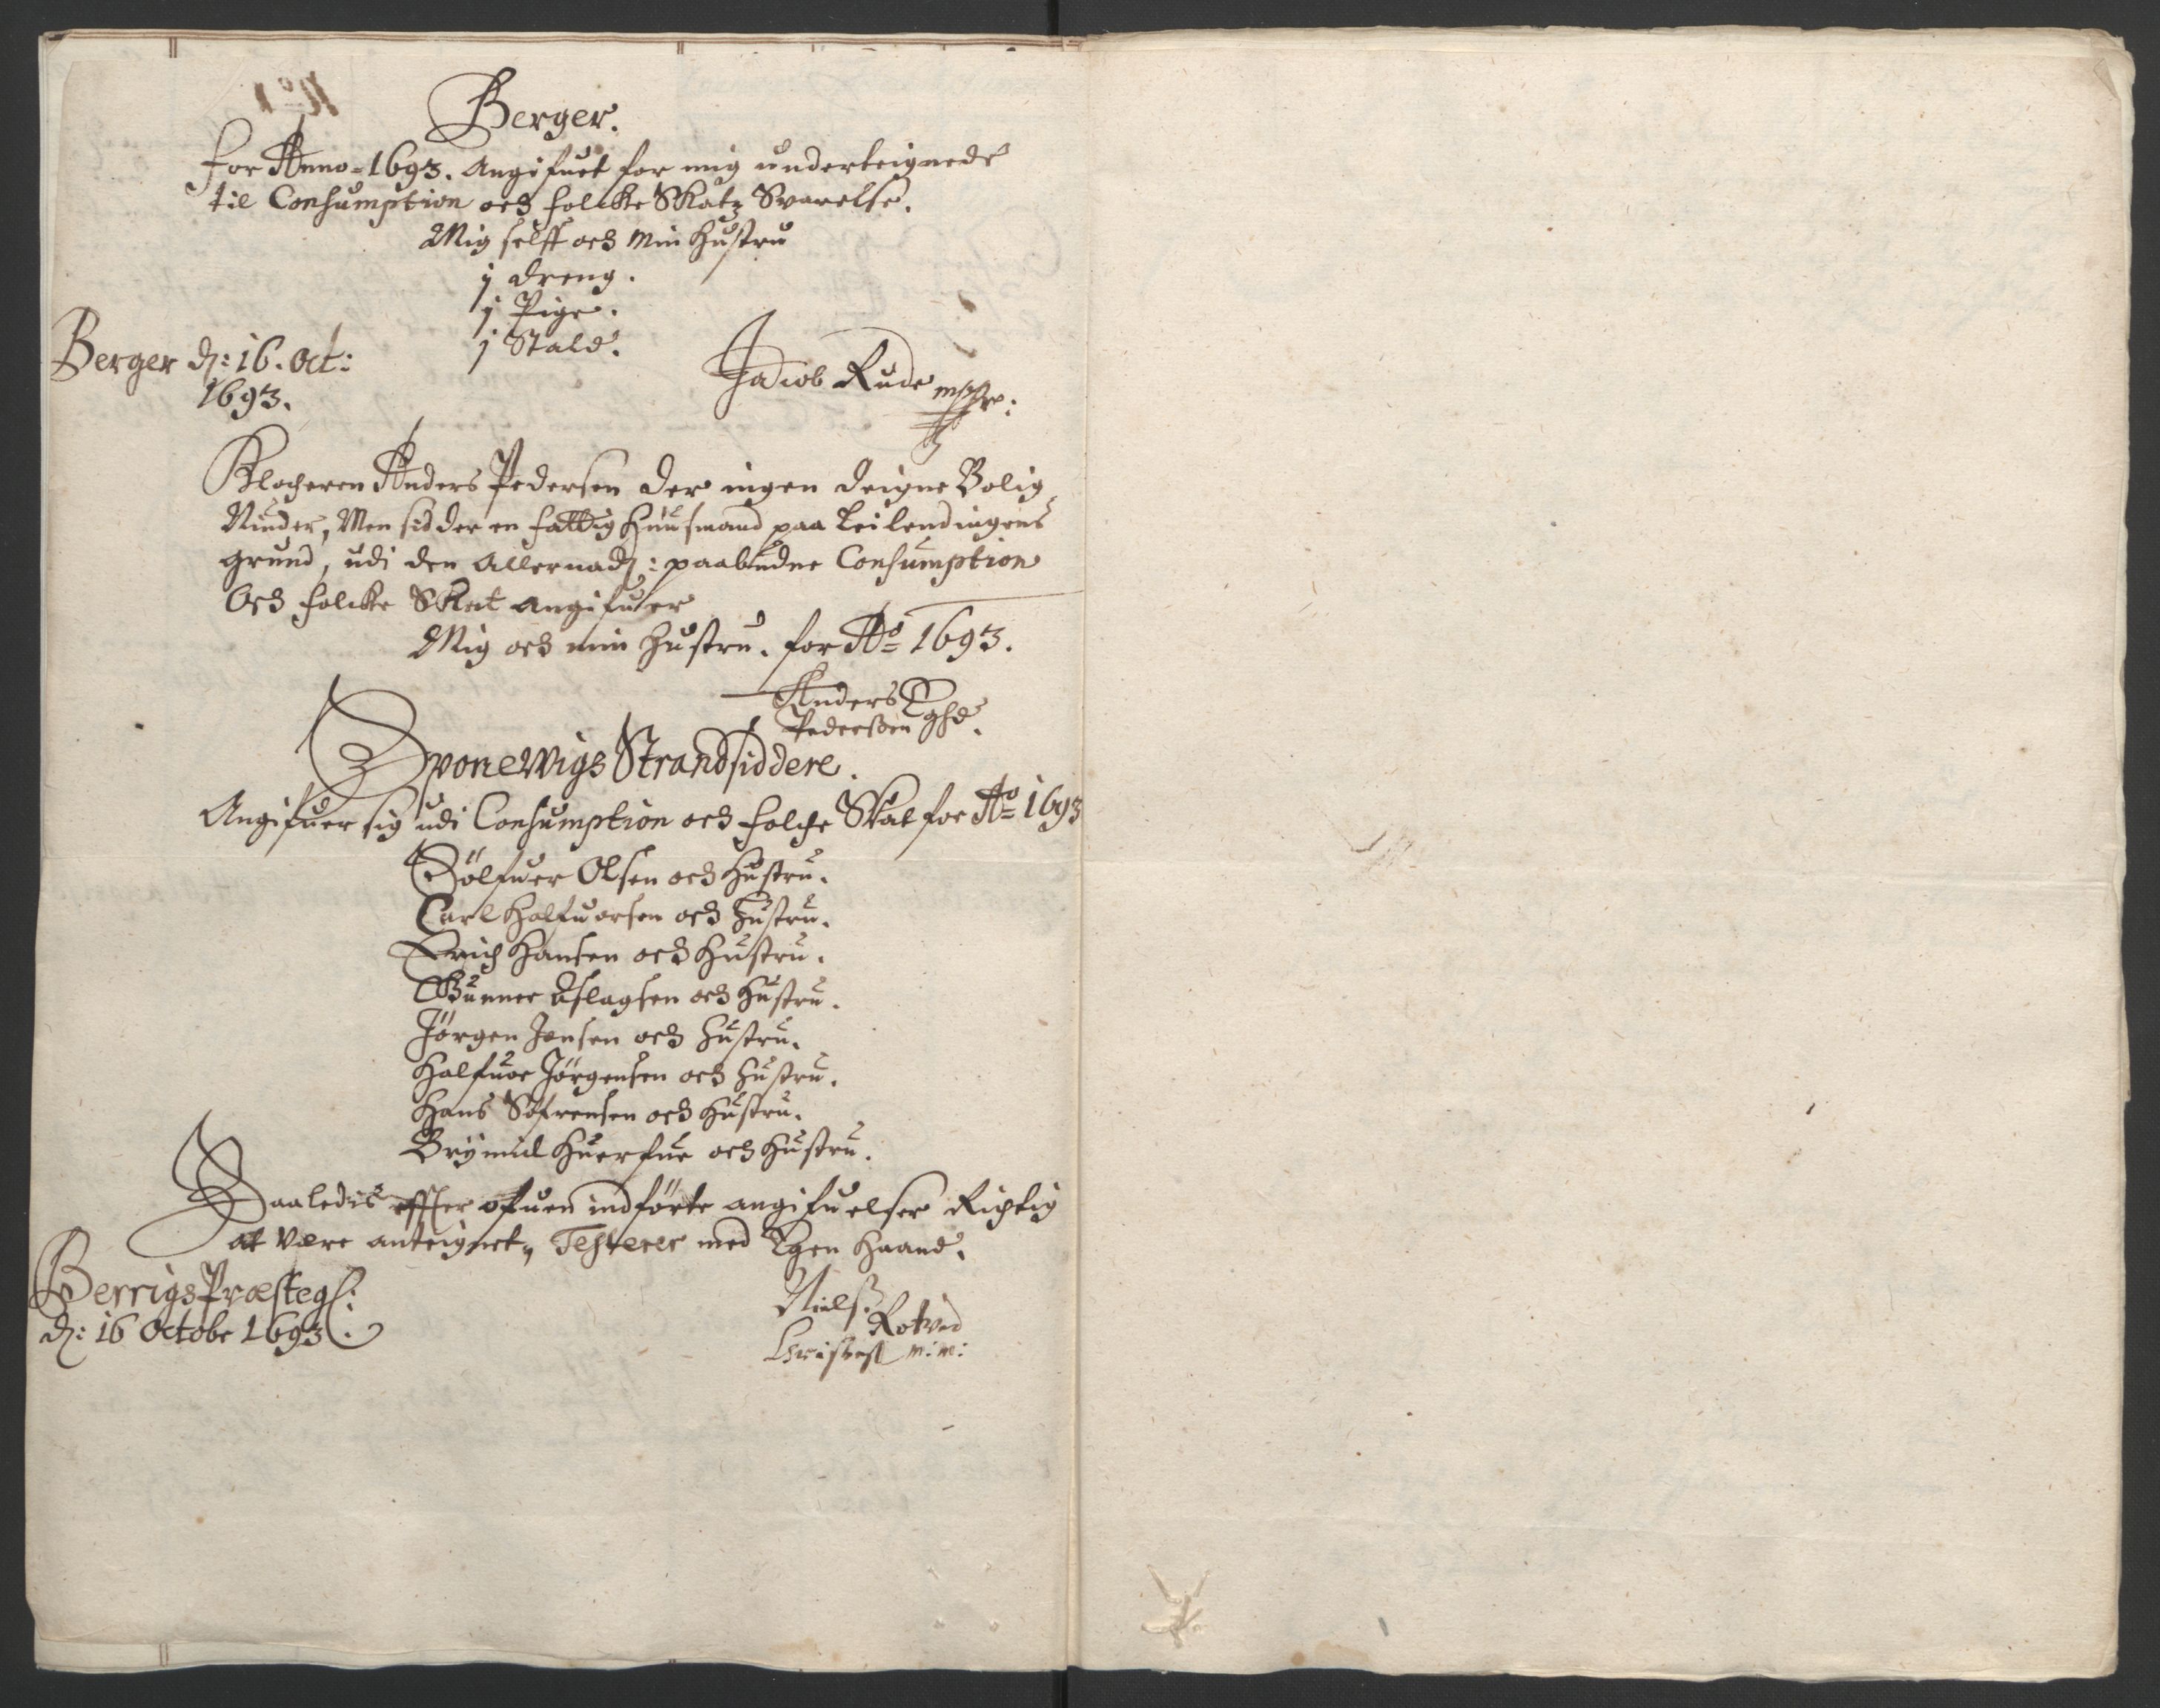 Berger.
for Anno 1693. Angifuet for mig underteignede
til Consumption och folcke Skatz Svarelse.
Mig selff och Min Hustru
1 dreng.
1 Pige.
1 Stald.
Berger d: 16. Oct:
1693.
Jacob Rude mppr:
Klocheren Anders Pedersen der ingen deigne Bolig
Niuder, Men sidder en fattig Huusmand paa Leilendingens
grund, udi den Allernad: paabudne Consumption
Och folcke Skat angifuer
Mig och min Hustru. for Ao 1693.
Anders
Pedersen Eghd.
Svonewigs Strandsiddere.
Angifuer sig udi Consumption och folche Skat for Ao 1693
Sölfuer Olsen och Hustru.
Carl Halfuorsen och Hustru.
Erich Hansen och Hustru.
Gunner Aslagsen och Hustru.
Jörgen Jensen och Hustru.
Halfuor Jörgensen och Hustru.
Hans Söfrensen och Hustru.
Brynnild och Hustru.
Saaledis effter ofuen indförte angifuelser Richtig
at være anteignet, Testerer med Egen Haand.
Berrigs Præstegl:
d: 16 Octobr 1693.
Nielß
Rotved
Christenß m: m: